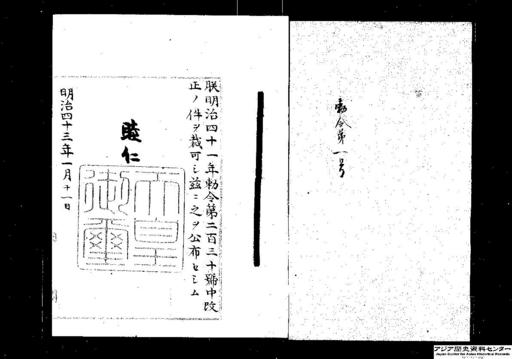 勅令第一号
朕明治四十一年勅令第二百三十號中改
正ノ件ヲ裁可シ茲ニ之ヲ公布セシム
睦仁
天皇御璽
明治四十三年一月十一日
アジア歴史資料センター
Japan Center for Asian Historical Records